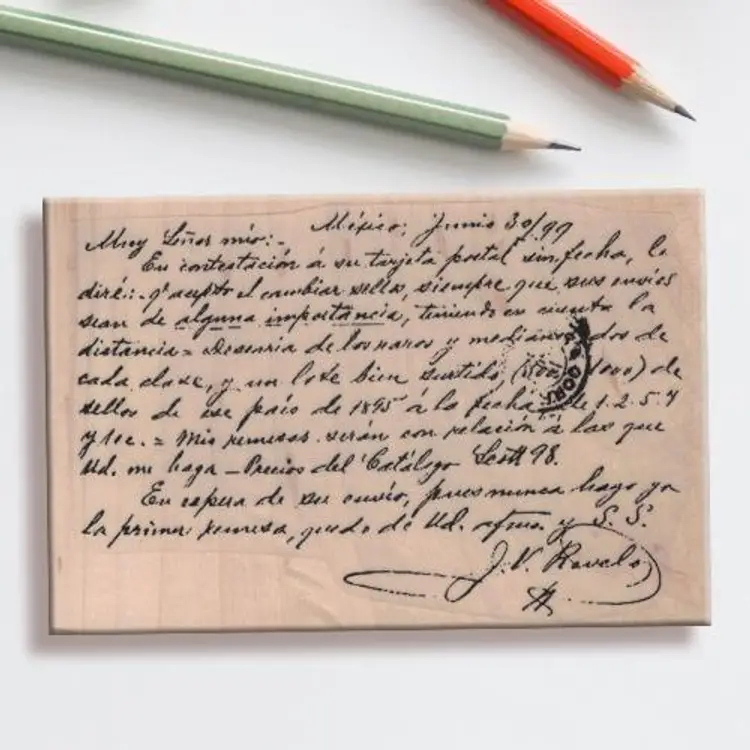 México, Junio 30/99
Muy Señor mio:-
En contestación á su tarjeta postal sin fecha, le
diré:- q' acepto el cambiar sellos, siempre que sus envíos
sean de alguna importancia, teniendo en cuenta la
distancia = Desearia de los raros y medianos dos de
cada clase, y un lote bien surtido, (500 1000) de
sellos de ese país de 1895 á la fecha de 1. 2. 5. y
y 10c. = Mis remesas serán con relación á las que
Ud. me haga - Precios del Catálogo Scott 98.
En espera de su envío, pues nunca hago yo
la primer remesa, quedo de Ud. afmo. y S. S.
J. V. Ravelo